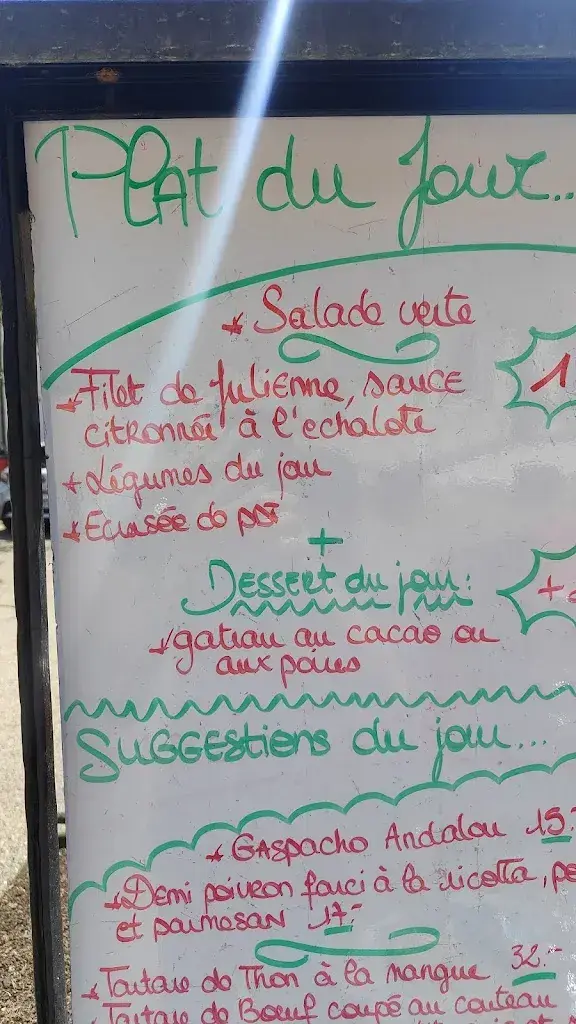 Plat du Jour...
* Salade verte
* Filet de Julienne, sauce
citronnée à l'echalote
1
* Légumes du jour
* Ecrasée de pdt
+
Dessert du jour:
+
* gateau au cacao ou
aux poires
Suggestions du jour...
* Gaspacho Andalou 15.-
* Demi poivron farci à la ricotta,
et parmesan 17.-
* Tartare de Thon à la mangue 32.-
* Tartare de Boeuf coupé au couteau